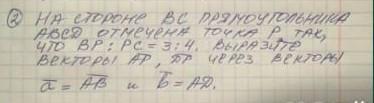 ② НА СТОРОНЕ ВС ПРЯМОУГОЛЬНИКА
ABCD ОТМЕЧЕНА ТОЧКА Р ТАК,
ЧТО ВР : РС = 3 : 4. ВЫРАЗИТЕ
ВЕКТОРЫ АР, DP ЧЕРЕЗ ВЕКТОРЫ
a̅ = A̅B̅ и b̅ = AD.